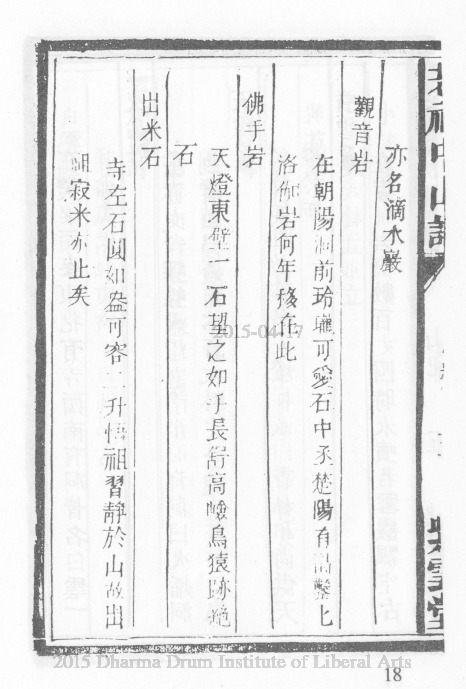 亦名滴水巖
觀音岩
在朝陽洞前玲瓏可愛石中丞楚陽有詩鑿七
洛伽岩何年移在此
佛手岩
天燈東壁一石望之如手長舒高險鳥猿跡絶
石
出米石
寺左石圓如盎可容一升悟祖習靜於山故出
祖寂米亦止矣
紫雲堂
2015-04-17
2015 Dharma Drum Institute of Liberal Arts
18